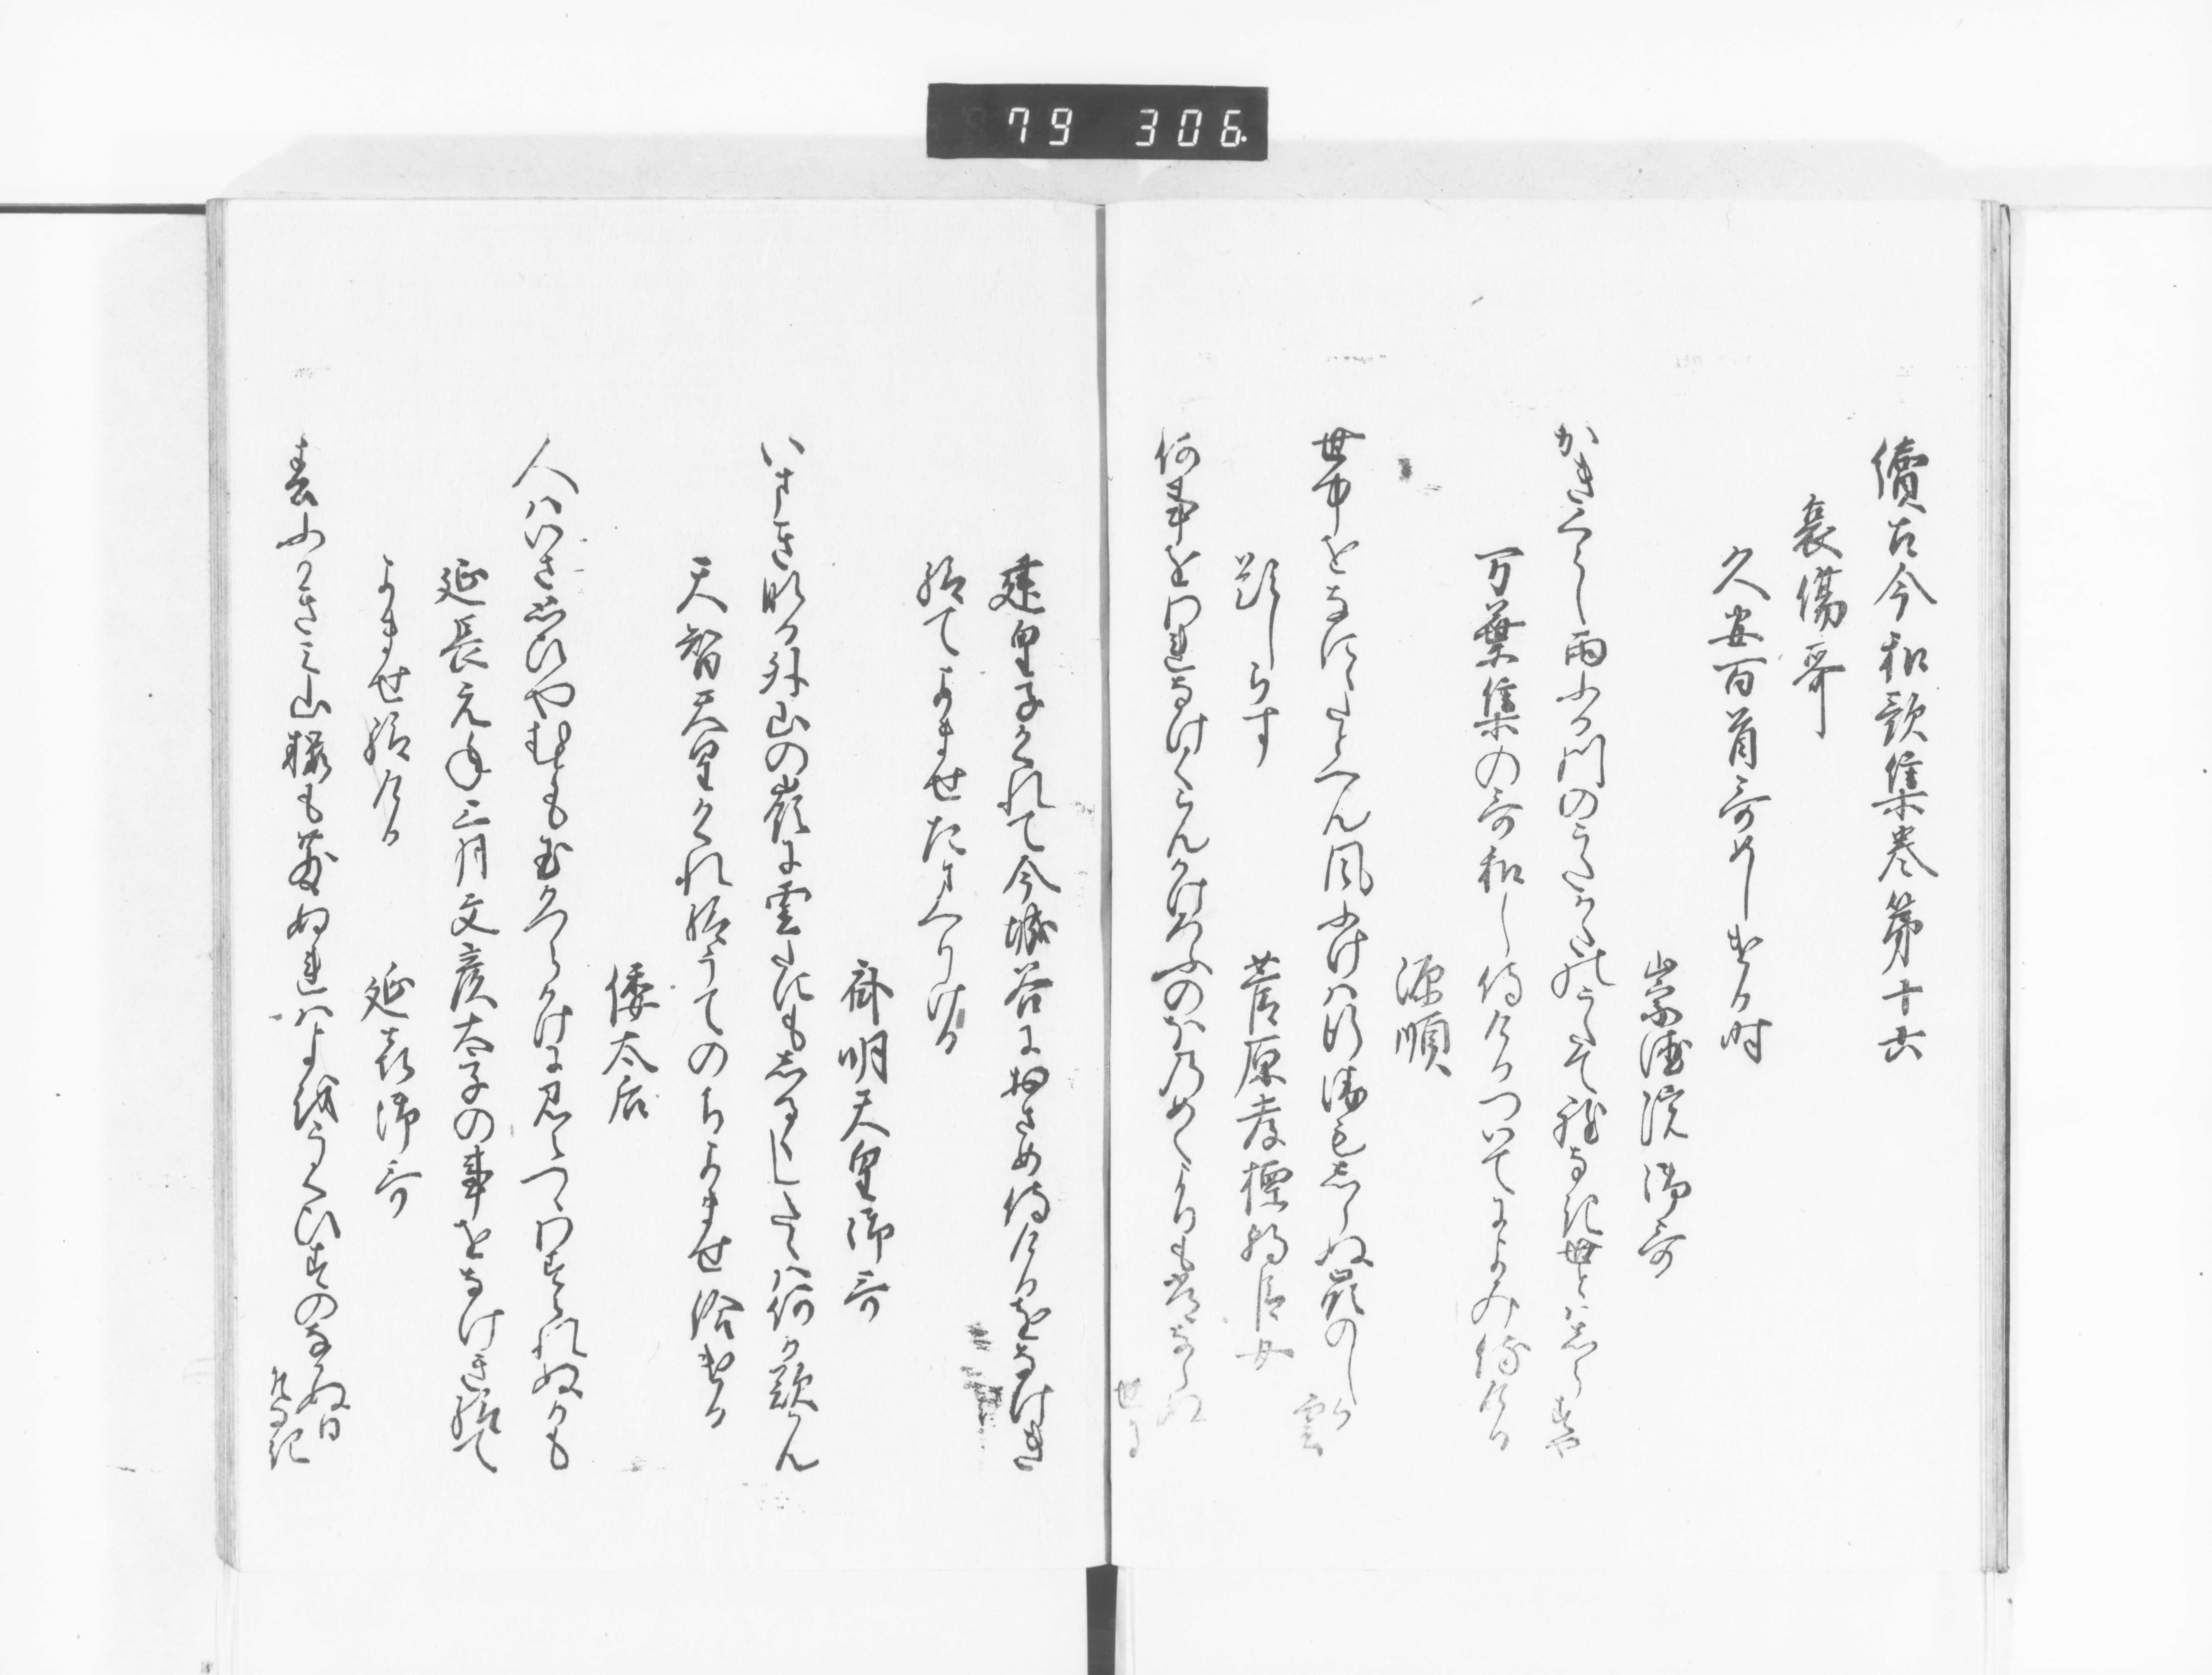 79 306
續古今和歌集巻第十六
哀傷哥
久安百首哥めしける時
崇徳院御哥
かきくらし雨ふる川のうたかたのうたて程なき世とはしらすや
万葉集の哥和し侍けるつゐてによみ侍ける
源順
世中をなにゝたとへん風ふけは行衛もしらぬ嶺のしら雲
題しらす
菅原孝標朝臣女
何事をわれなけくらんかけろふのほのめくよりも常ならぬ世に
建皇子かくれて今城谷におさめ侍けるをなけき
給てよませたまへりける
斉明天皇御哥
いまき那る外山の嶺に雲たにもしるくしたゝは何か歎かん
天智天皇かくれ給うてのちよませ給ける
倭太后
人はいさ思ひやむとも玉かつらかけに見えつゝわすられぬかも
延長元年三月文彦太子の事をなけき給て
よませ給ける
延喜御哥
春ふかきみ山桜も散ぬれはよをうくひすのなかぬ日そなき